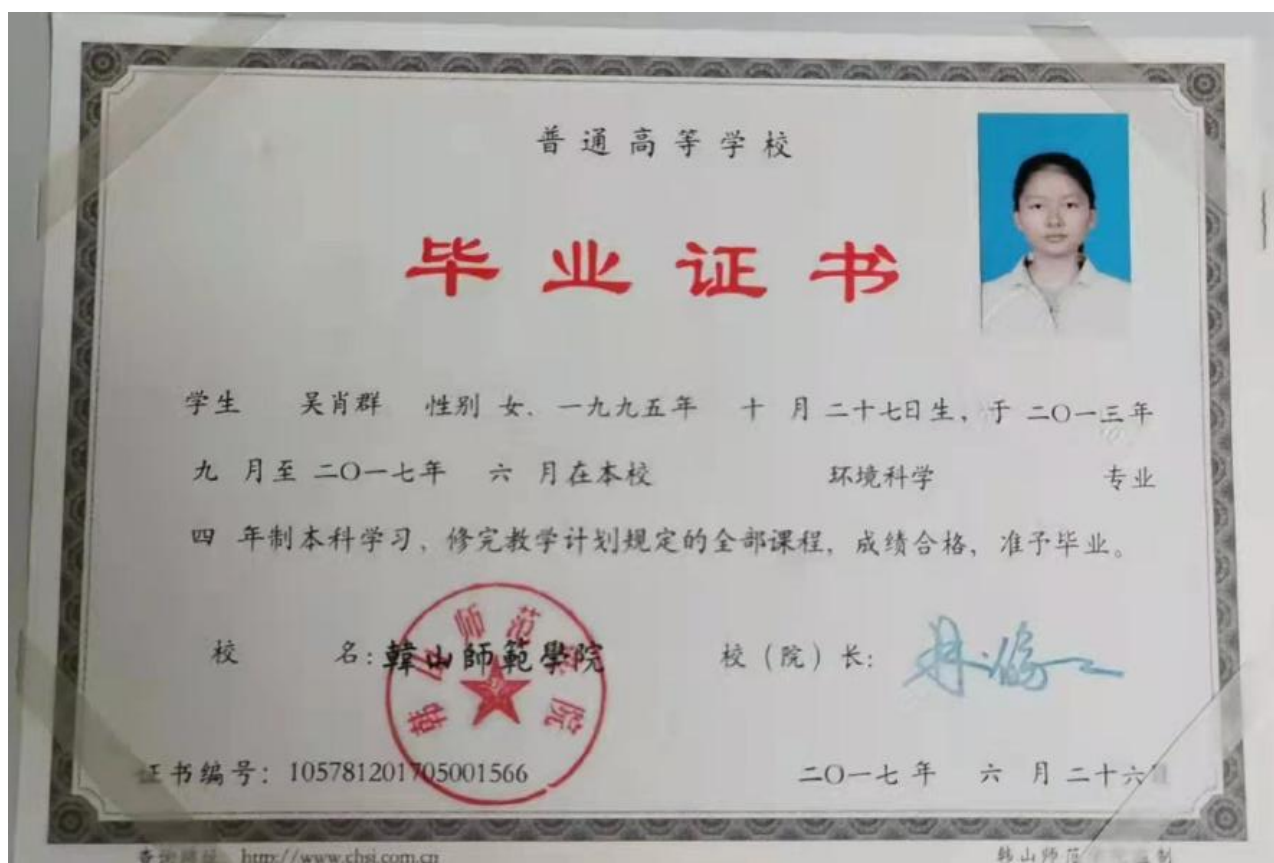 普通高等学校
毕业证书
学生 吴肖群 性别 女、一九九五年 十 月 二十七日生，于 二〇一三年
九 月至 二〇一七年 六 月在本校 环境科学 专业
四 年制本科学习、修完教学计划规定的全部课程，成绩合格，准予毕业。
校 名：韓山師範學院 校（院）长：
韩山师范学院
证书编号：105781201705001566 二〇一七年 六 月 二十六日
查询网址：http://www.chsi.com.cn 韩山师范学院监制